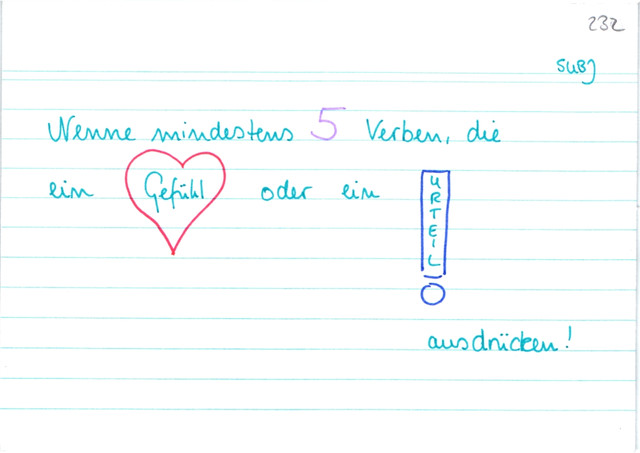 232
SUBJ
Nenne mindestens 5 Verben, die
ein Gefühl oder ein URTEIL
ausdrücken!